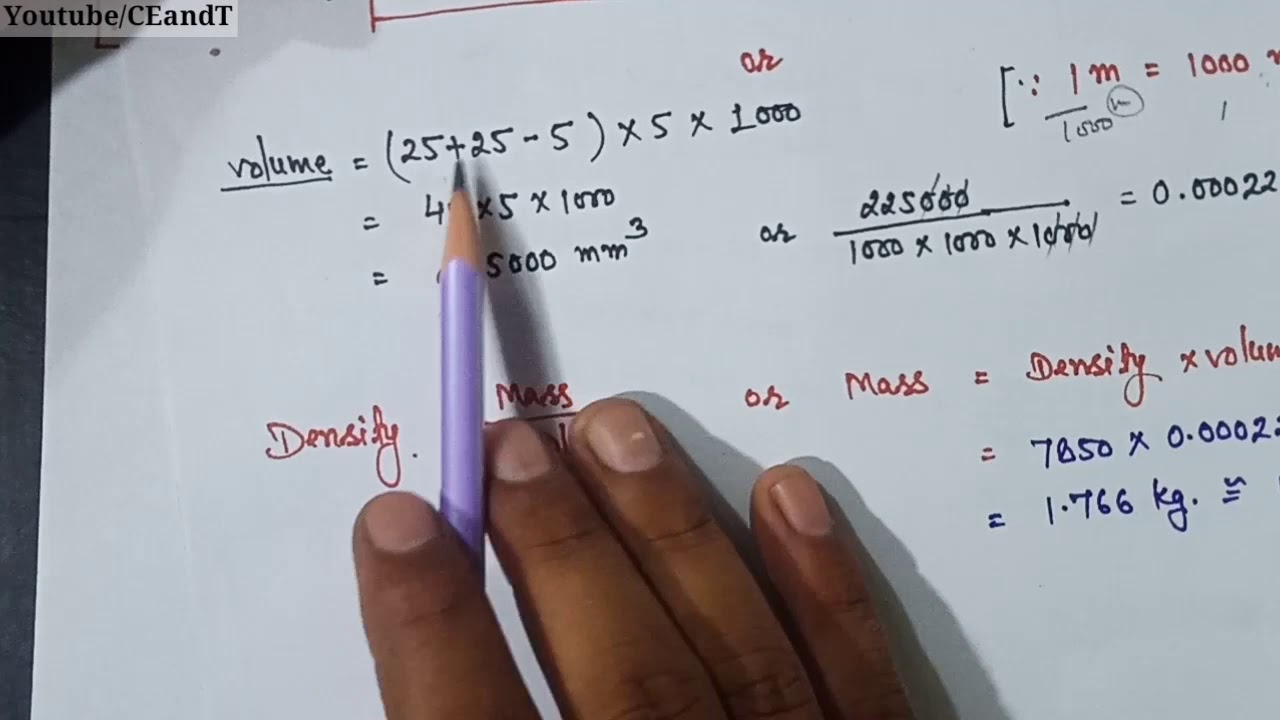 Youtube/CEandT
or
[∵ 1 m = 1000
1000 m 1
volume = (25+25-5) × 5 × 1000
= 4 ×5 × 1000
= 5000 mm³ or 225000 / 1000 × 1000 × 1000 = 0.00022
Density Mass or Mass = Density × volu
= 7850 × 0.00022
= 1.766 kg. ≅